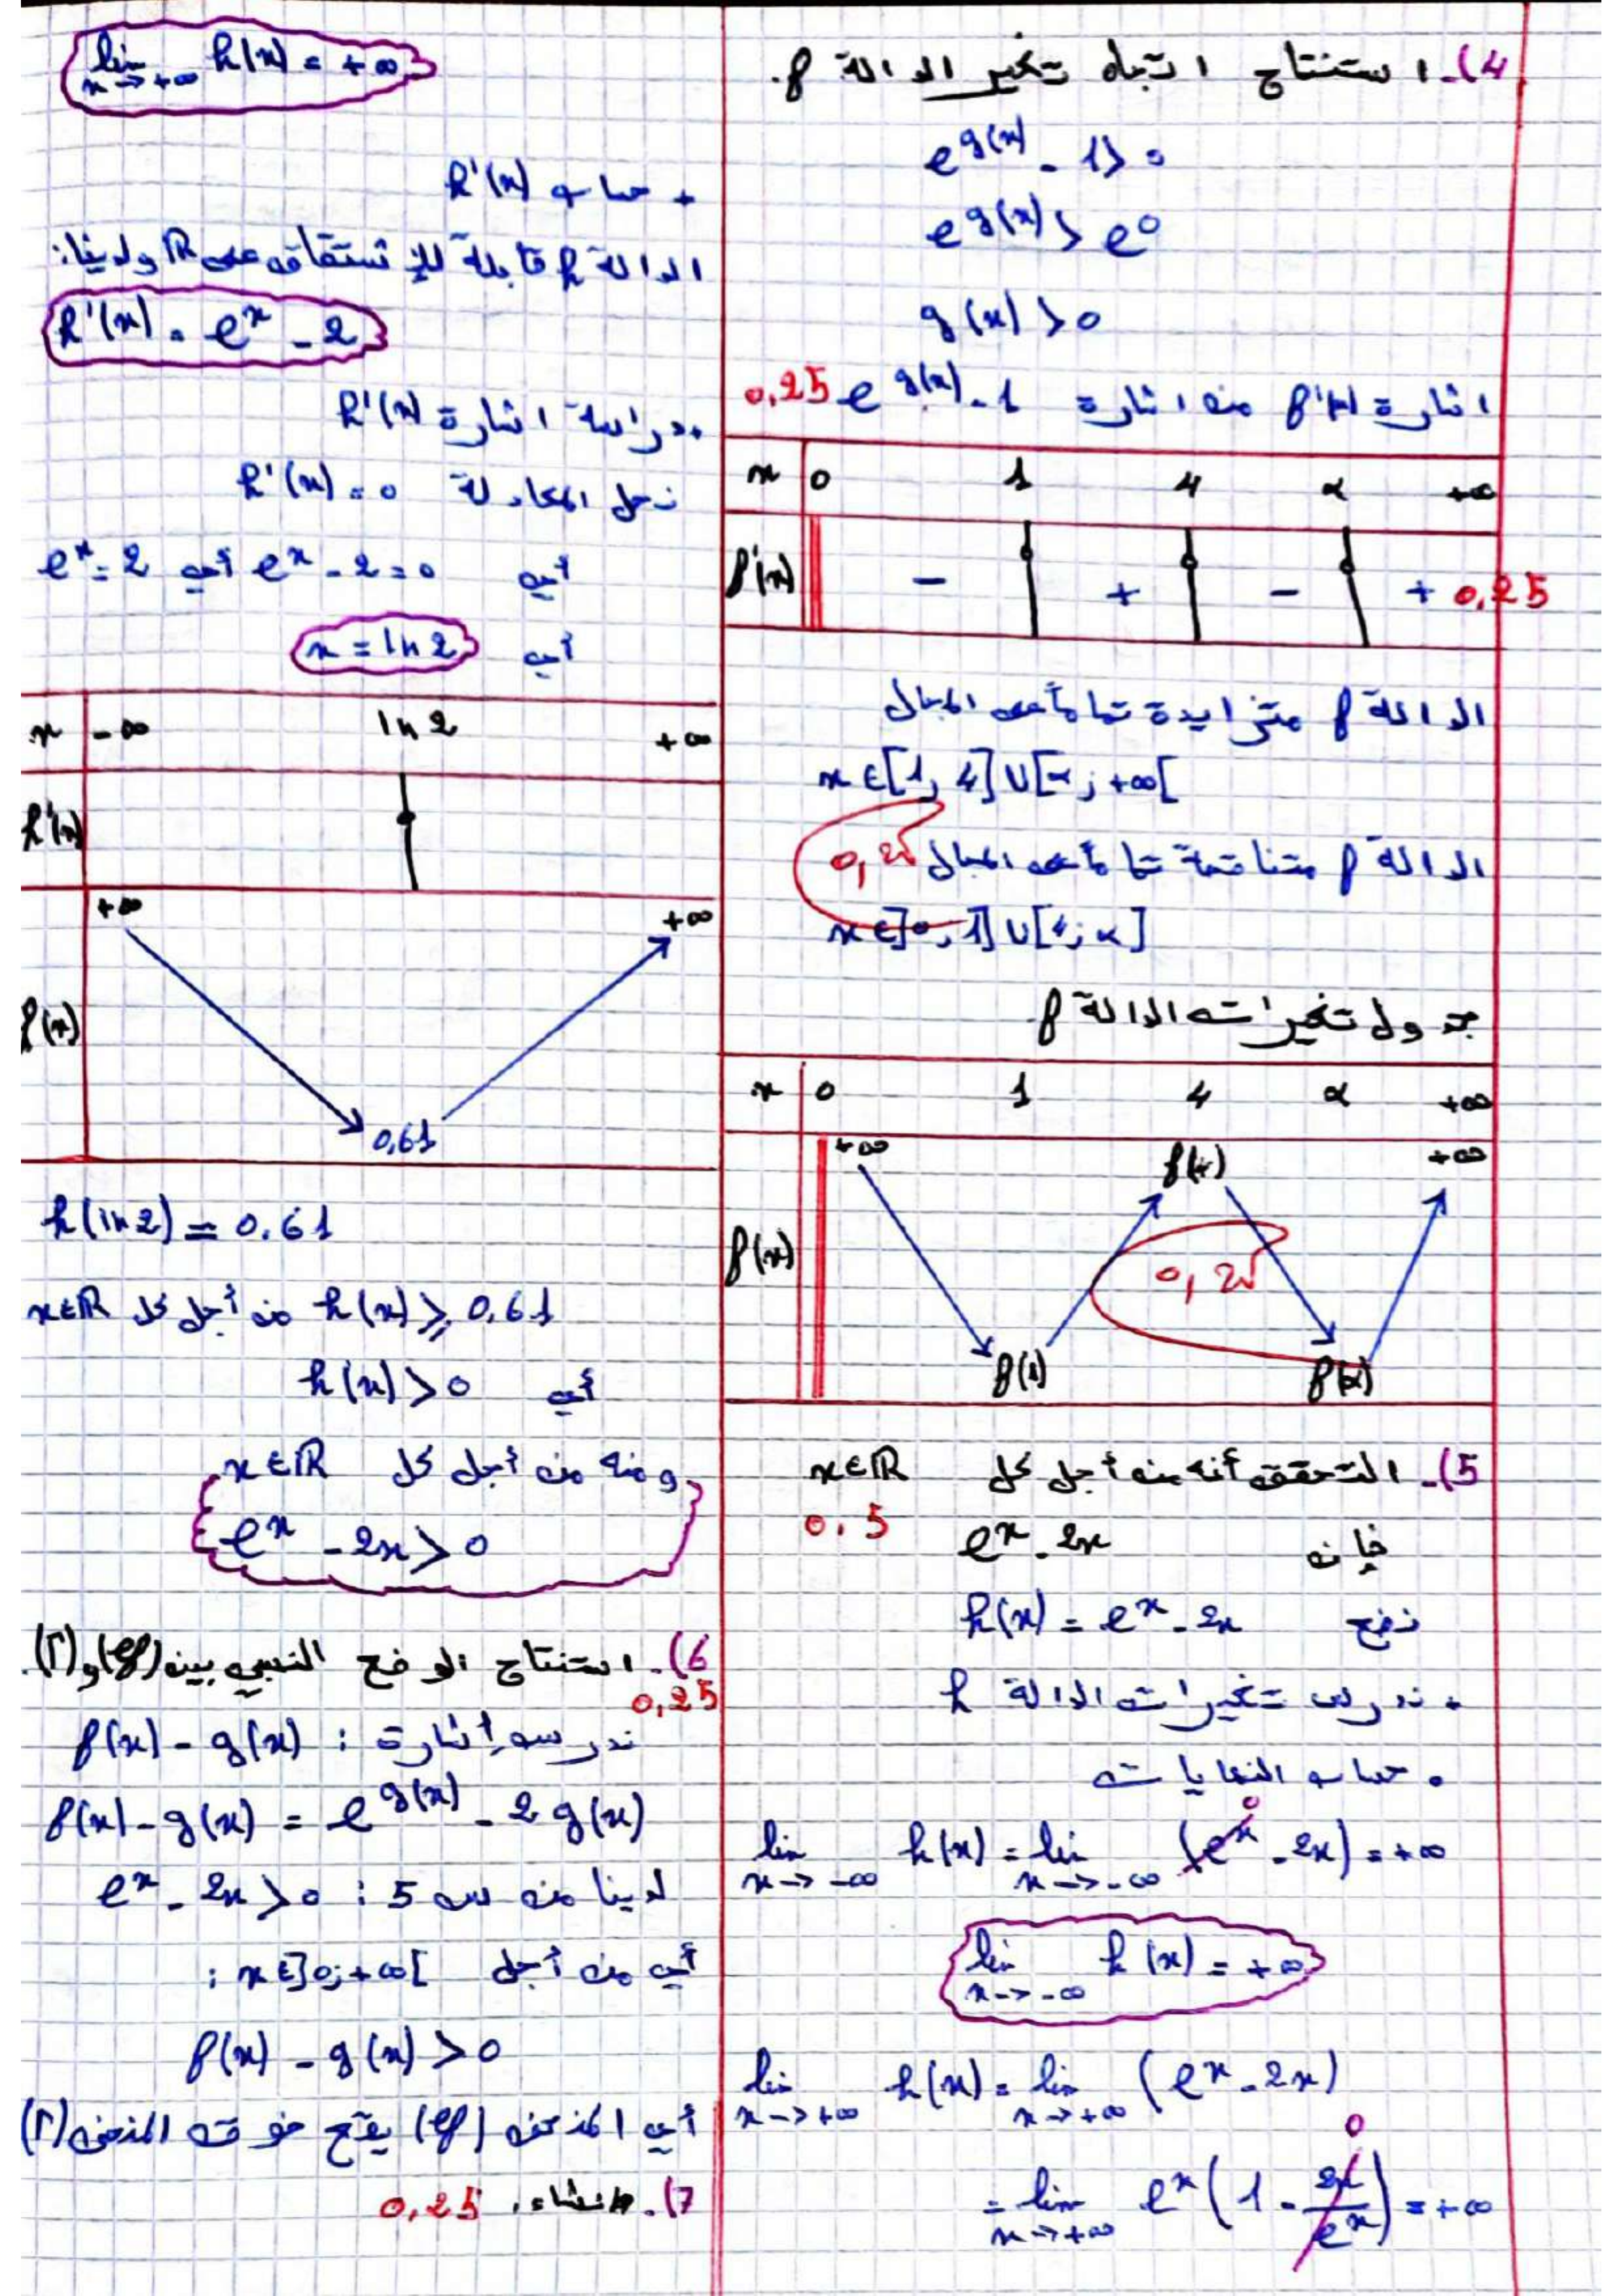 4). استنتاج اتجاه تغير الدالة f.
e^{g(x)} - 1 > 0
e^{g(x)} > e^0
g(x) > 0
اشارة f'(x) من اشارة e^{g(x)} - 1 0,25
x 0 1 4 α +∞
f'(x) - + - + 0,25
الدالة f متزايدة تماما على المجال
x∈[1; 4]∪[α; +∞[
الدالة f متناقصة تماما على المجال 0,25
x∈]0; 1]∪[4; α]
جدول تغيرات الدالة f.
x 0 1 4 α +∞
+∞ f(4) +∞
f(x) 0,25
f(1) f(α)
5). التحقق أنه من أجل كل x∈ℝ
فإن e^x - 2x 0.5
نضع h(x) = e^x - 2x
• ندرس تغيرات الدالة h
• حساب النهايات
lim_{x→-∞} h(x) = lim_{x→-∞} (e^x - 2x) = +∞
0
lim_{x→-∞} h(x) = +∞
lim_{x→+∞} h(x) = lim_{x→+∞} (e^x - 2x)
0
= lim_{x→+∞} e^x (1 - 2x/e^x) = +∞
lim_{x→+∞} h(x) = +∞
+ حساب h'(x)
الدالة h قابلة للإشتقاق على ℝ ولدينا:
h'(x) = e^x - 2
• دراسة اشارة h'(x)
نحل المعادلة h'(x) = 0
أي e^x - 2 = 0 أي e^x = 2
أي x = ln 2
x -∞ ln 2 +∞
h'(x)
+∞ +∞
f(x)
0,61
h(ln 2) = 0.61
h(x) ≥ 0,61 من أجل كل x∈ℝ
أي h(x) > 0
ومنه من أجل كل x∈ℝ
e^x - 2x > 0
6). استنتاج الوضع النسبي بين (Cf) و (Γ).
0,25
ندرس إشارة : f(x) - g(x)
f(x) - g(x) = e^{g(x)} - 2g(x)
لدينا من س 5 : e^x - 2x > 0
أي من أجل x∈]0; +∞[ :
f(x) - g(x) > 0
أي المنحنى (Cf) يقع فوق المنحنى (Γ)
7). الإنشاء. 0,25